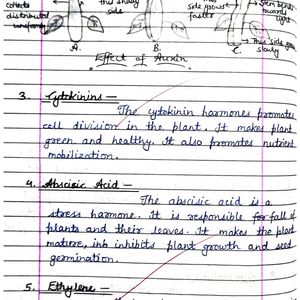 collects this shady side grows Stem bends
distributed side faster towards
uniformly light
This side grow
A. B. C. slowly
Effect of Auxin
3. Cytokinins —
The cytokinin harmones promotes
cell division in the plant. It makes plant
green and healthy. It also promotes nutrient
mobilization.
4. Abscisic Acid —
The abscisic acid is a
stress harmone. It is responsible for fall of
plants and their leaves. It makes the plant
mature, inh inhibits plant growth and seed
germination.
5. Ethylene —